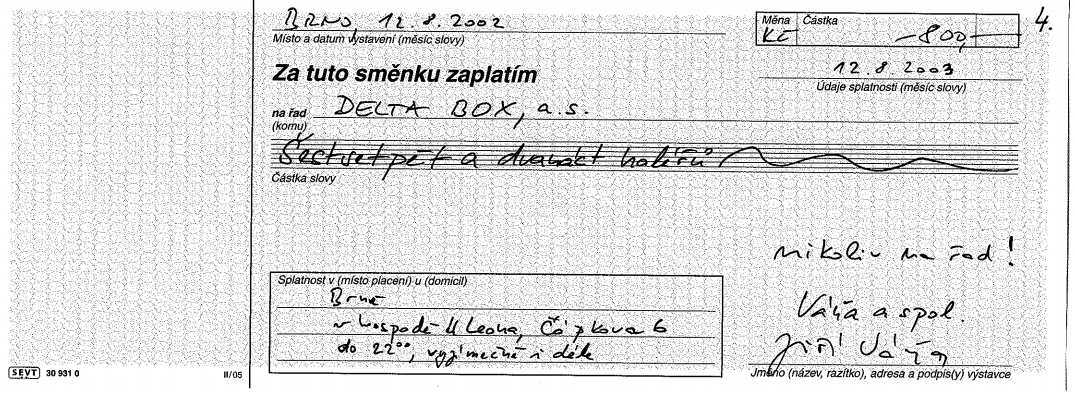 BRNO, 12.8.2002
Místo a datum vystavení (měsíc slovy)
Měna Částka
KČ -800,-
4.
12.8.2003
Údaje splatnosti (měsíc slovy)
Za tuto směnku zaplatím
na řad DELTA BOX, a.s.
(komu)
Šestsetpět a dvanáct haléřů
Částka slovy
nikoliv na řad!
Splatnost v (místo placení) u (domicil)
Brně
v hospodě U Leona, Čápkova 6
do 22⁰⁰, vyjímečně i déle
Váňa a spol.
Jiří Váňa
Jméno (název, razítko), adresa a podpis(y) výstavce
SEVT 30 931 0
II/05